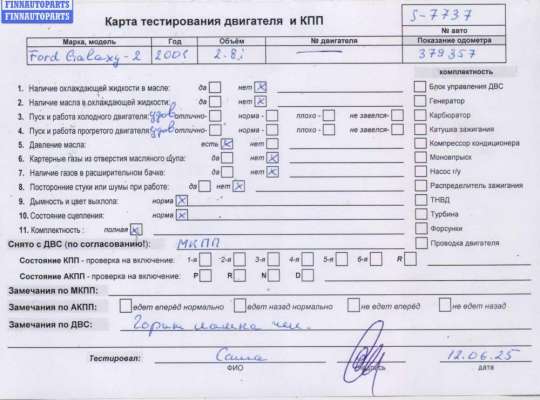 FINNAUTOPARTS
FINNAUTOPARTS
Карта тестирования двигателя и КПП
S-7737
№ авто
Марка, модель Год Объём № двигателя Показание одометра
Ford Galaxy-2 2001 2.8i 379357
комплектность
1. Наличие охлаждающей жидкости в масле: да нет Блок управления ДВС
2. Наличие масла в охлаждающей жидкости: да нет Генератор
3. Пуск и работа холодного двигателя: удов отлично- норма - плохо - не завелся- Карбюратор
4. Пуск и работа прогретого двигателя: удов отлично- норма - плохо - не завелся- Катушка зажигания
5. Давление масла: есть нет Компрессор кондиционера
6. Картерные газы из отверстия масляного щупа: да нет Моновпрыск
7. Наличие газов в расширительном бачке: да нет Насос г/у
8. Посторонние стуки или шумы при работе: да нет Распределитель зажигания
9. Дымность и цвет выхлопа: норма ТНВД
10. Состояние сцепления: норма Турбина
11. Комплектность : полная Форсунки
Снято с ДВС (по согласованию!): МКПП Проводка двигателя
Состояние КПП - проверка на включение: 1-я 2-я 3-я 4-я 5-я 6-я R
Состояние АКПП - проверка на включение: P R N D
Замечания по МКПП:
Замечания по АКПП: едет вперёд нормально едет назад нормально не едет вперёд не едет назад
Замечания по ДВС: Горит лампа чек.
Тестировал: Саша 12.06.25
ФИО подпись дата